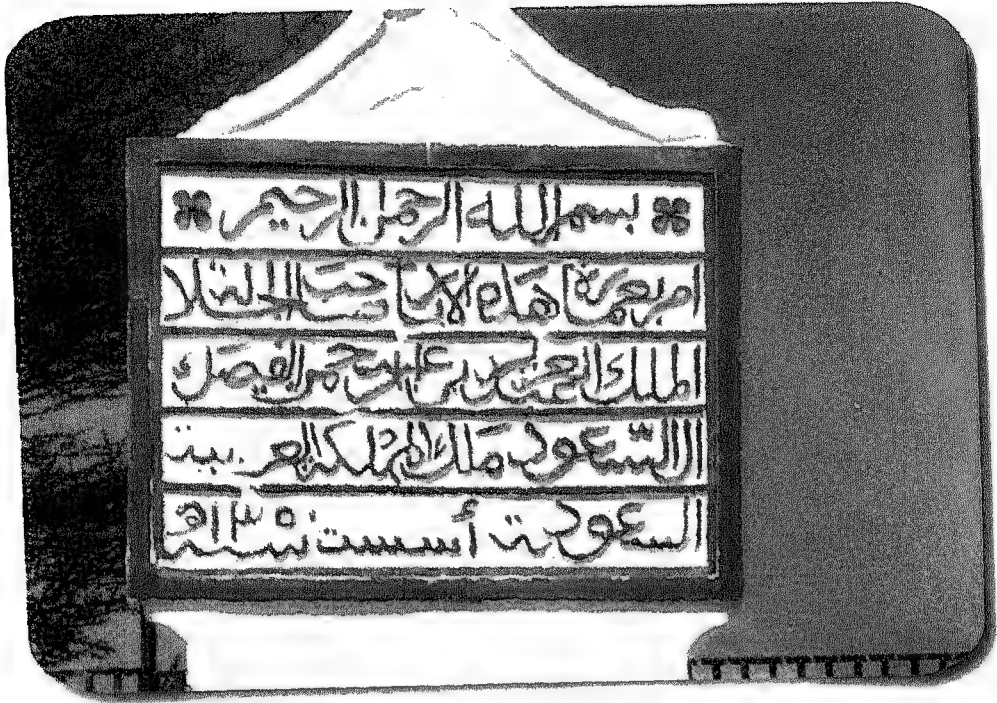 بسم الله الرحمن الرحيم
امر بعمارة هذه صاحب الجلالة
الملك عبد العزيز بن عبد الرحمن الفيصل
ال السعود ملك المملكة العربية
السعودية أسست سنة